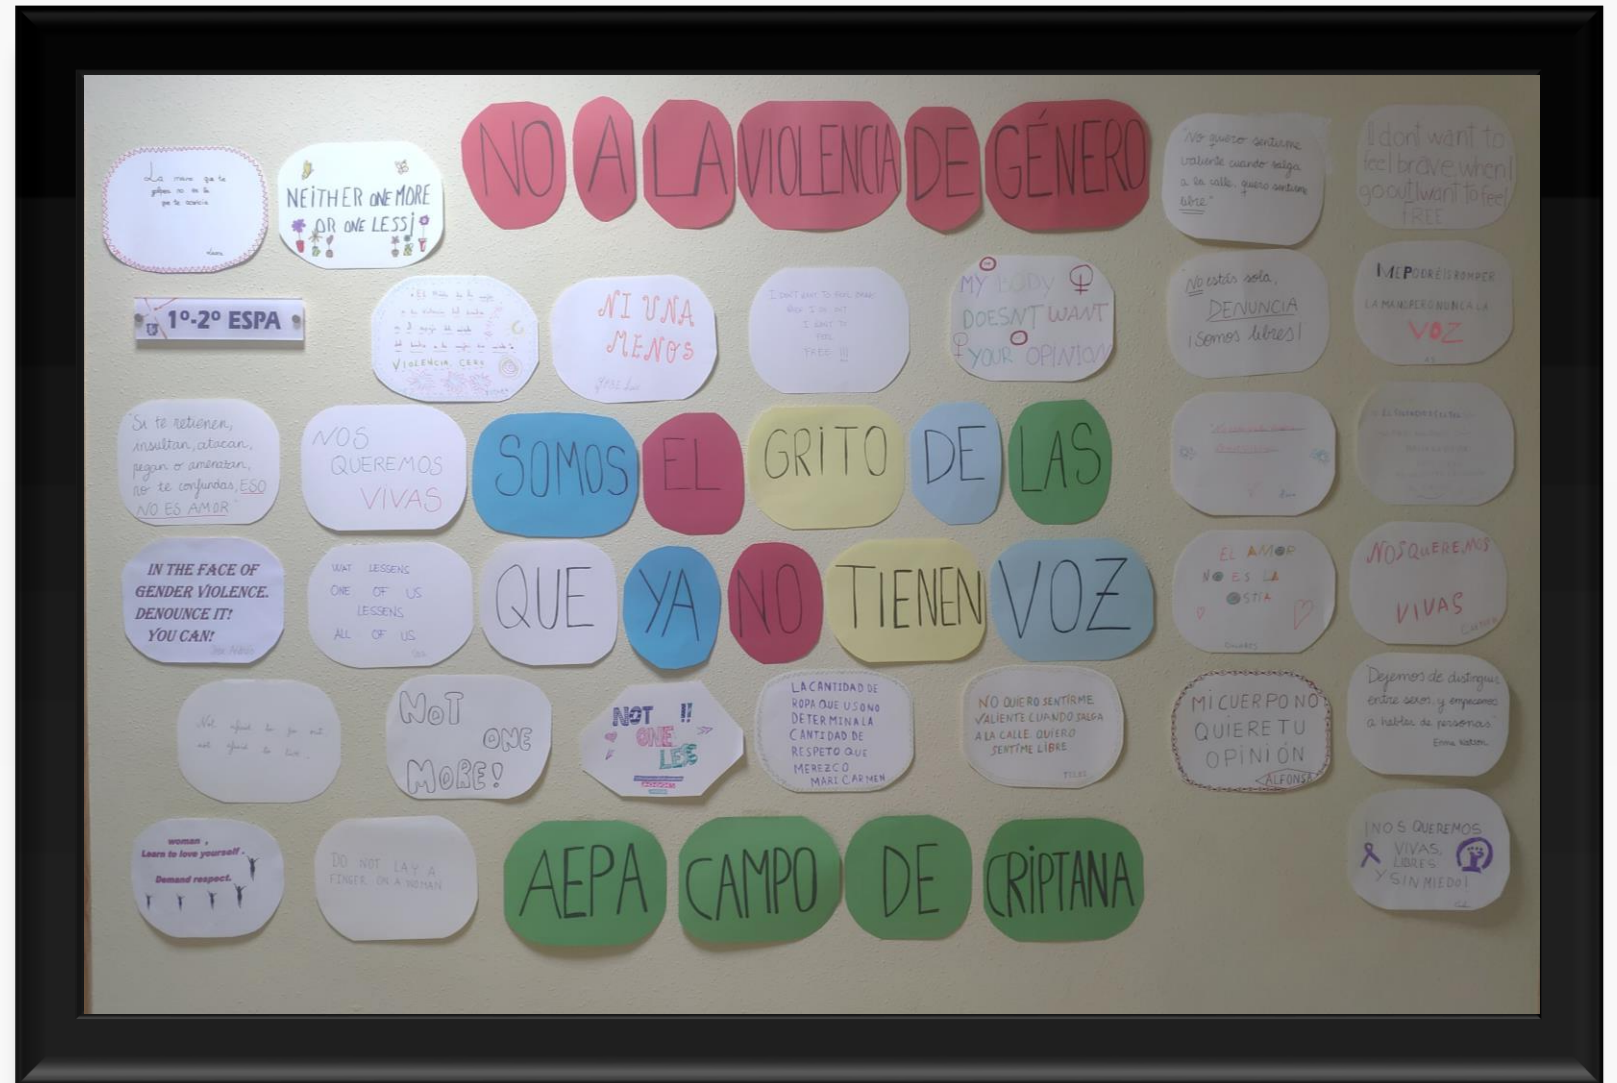 NO A LA VIOLENCIA DE GÉNERO
La mano que te
golpea no es la
que te acaricia
NEITHER ONE MORE
OR ONE LESS¡
"No quiero sentirme
valiente cuando salga
a la calle, quiero sentirme
libre"
I dont want to
feel brave when I
go out I want to feel
FREE
1º-2º ESPA
VIOLENCIA CERO
NI UNA
MENOS
I DON'T WANT TO FEEL BRAVE
WHEN I GO OUT
I WANT TO
FEEL
FREE !!!
MY BODY
DOESNT WANT
YOUR OPINION
No estás sola,
DENUNCIA
¡Somos libres!
ME PODRÉIS ROMPER
LA MANO PERO NUNCA LA
VOZ
"Si te retienen,
insultan, atacan,
pegan o amenazan,
no te confundas, ESO
NO ES AMOR"
NOS
QUEREMOS
VIVAS
SOMOS EL GRITO DE LAS
IN THE FACE OF
GENDER VIOLENCE.
DENOUNCE IT!
YOU CAN!
WAT LESSENS
ONE OF US
LESSENS
ALL OF US
QUE YA NO TIENEN VOZ
EL AMOR
NO ES LA
OSTIA
Dolores
NOS QUEREMOS
VIVAS
Not afraid to
not afraid to live
NOT
ONE
MORE!
NOT !!
ONE
LESS
LA CANTIDAD DE
ROPA QUE USO NO
DETERMINA LA
CANTIDAD DE
RESPETO QUE
MEREZCO
MARI CARMEN
NO QUIERO SENTIRME
VALIENTE CUANDO SALGA
A LA CALLE. QUIERO
SENTIME LIBRE
MI CUERPO NO
QUIERE TU
OPINIÓN
ALFONSA
Dejemos de distinguir
entre sexos y empecemos
a hablar de personas.
Emma Watson
woman ,
Learn to love yourself .
Demand respect.
DO NOT LAY A
FINGER ON A WOMAN
AEPA CAMPO DE CRIPTANA
¡NOS QUEREMOS
VIVAS,
LIBRES
Y SIN MIEDO!